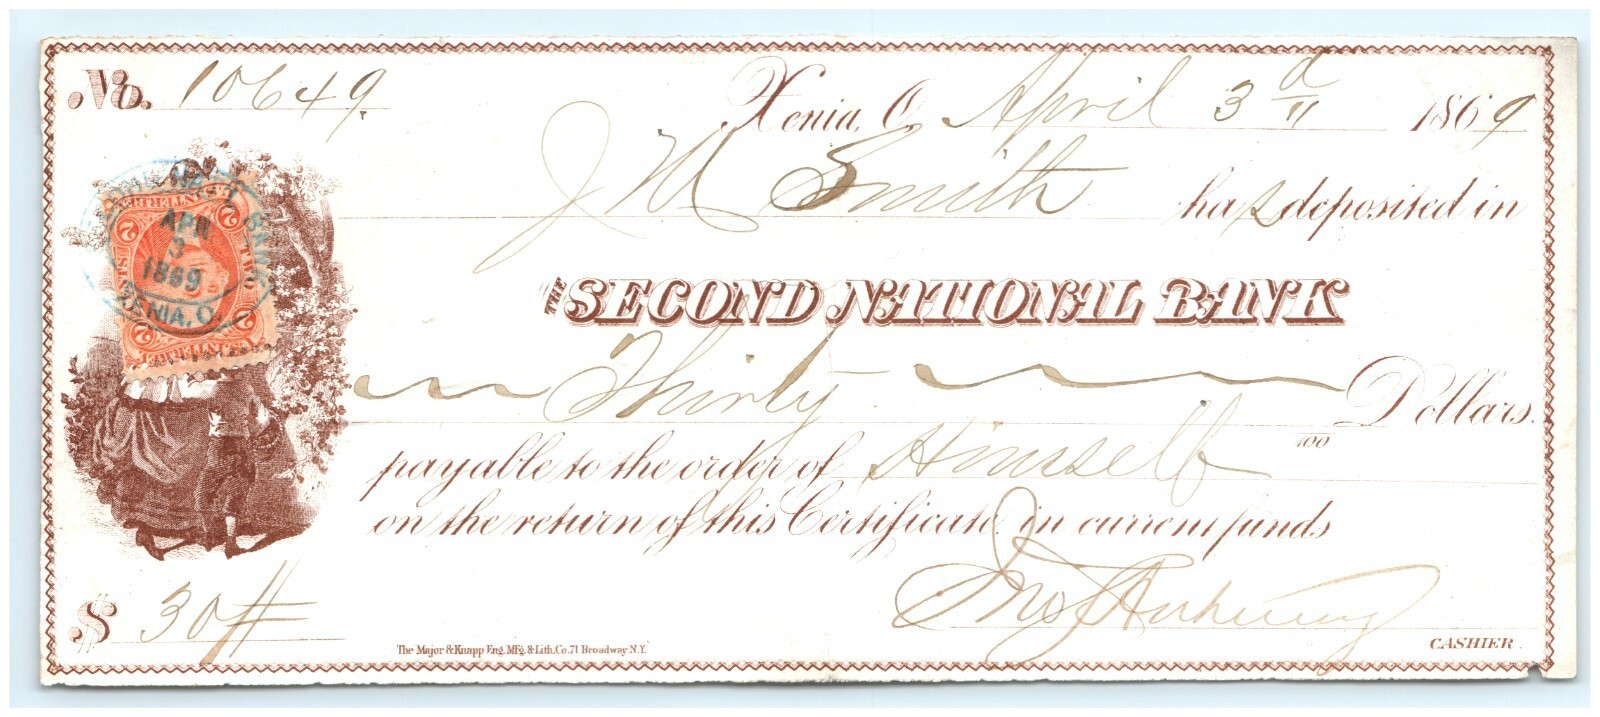 No. 10649. Xenia, O. April 3d 1869
J M Smith has deposited in
THE SECOND NATIONAL BANK
Thirty Dollars.
100
payable to the order of Himself
on the return of this Certificate in current funds
$ 30
CASHIER.
The Major & Knapp Eng. Mfg. & Lith. Co. 71 Broadway N.Y.
BANK
APR
3
1869
XENIA, O.
U.S. INTER. REV.
2
2
TWO
2
2
U.S. INTER. REV.